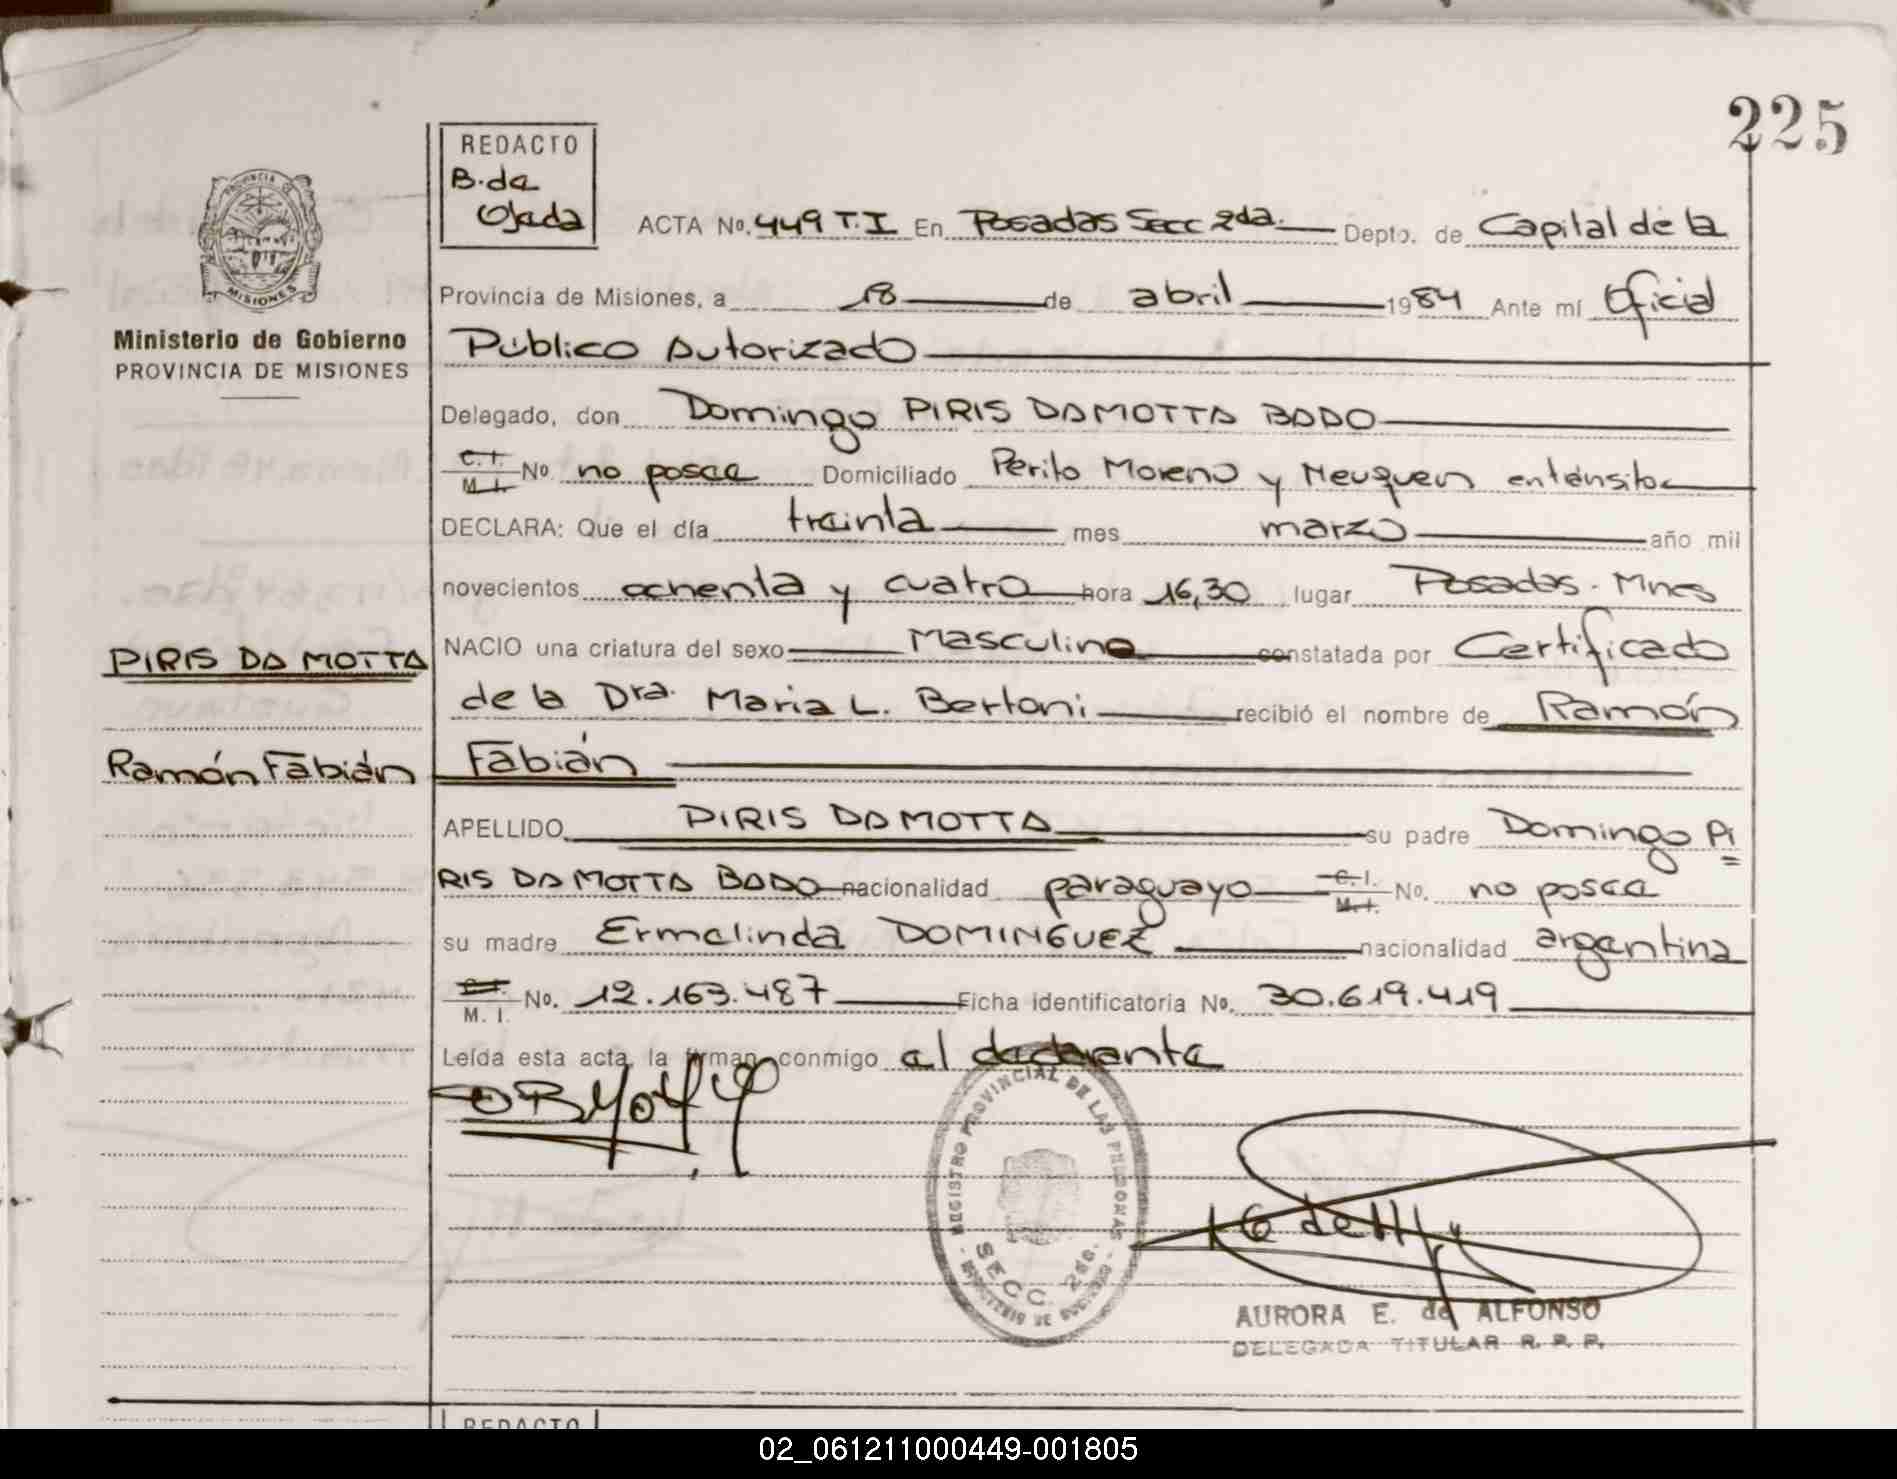 225
REDACTO
B. de
Ojeda
ACTA No. 449 T.I En Posadas Secc 2da. Depto. de Capital de la
PROVINCIA DE
MISIONES
Provincia de Misiones, a 18 de abril 1984 Ante mí Oficial
Ministerio de Gobierno
PROVINCIA DE MISIONES
Público Autorizado
Delegado, don Domingo PIRIS DA MOTTA BADO
C.I. M.I. No no posee Domiciliado Perito Moreno y Neuquen
DECLARA: Que el día treinta mes marzo año mil
novecientos ochenta y cuatro hora 16,30 lugar Posadas - Mnes
PIRIS DA MOTTA
NACIO una criatura del sexo Masculino constatada por Certificado
de la Dra. Maria L. Bertoni recibió el nombre de Ramón
Ramón Fabián
Fabián
APELLIDO PIRIS DA MOTTA su padre Domingo Pi
RIS DA MOTTA BADO nacionalidad paraguayo C.I. M.I. No. no posee
su madre Ermelinda DOMINGUEZ nacionalidad argentina
C.I. M. I. No. 12.163.487 Ficha identificatoria No. 30.619.419
Leída esta acta, la firman conmigo el
REGISTRO PROVINCIAL DE LAS PERSONAS
SECC. 2da.
MINISTERIO DE GOBIERNO
AURORA E. de ALFONSO
DELEGADA TITULAR R. P. P.
REDACTO
02_061211000449-001805